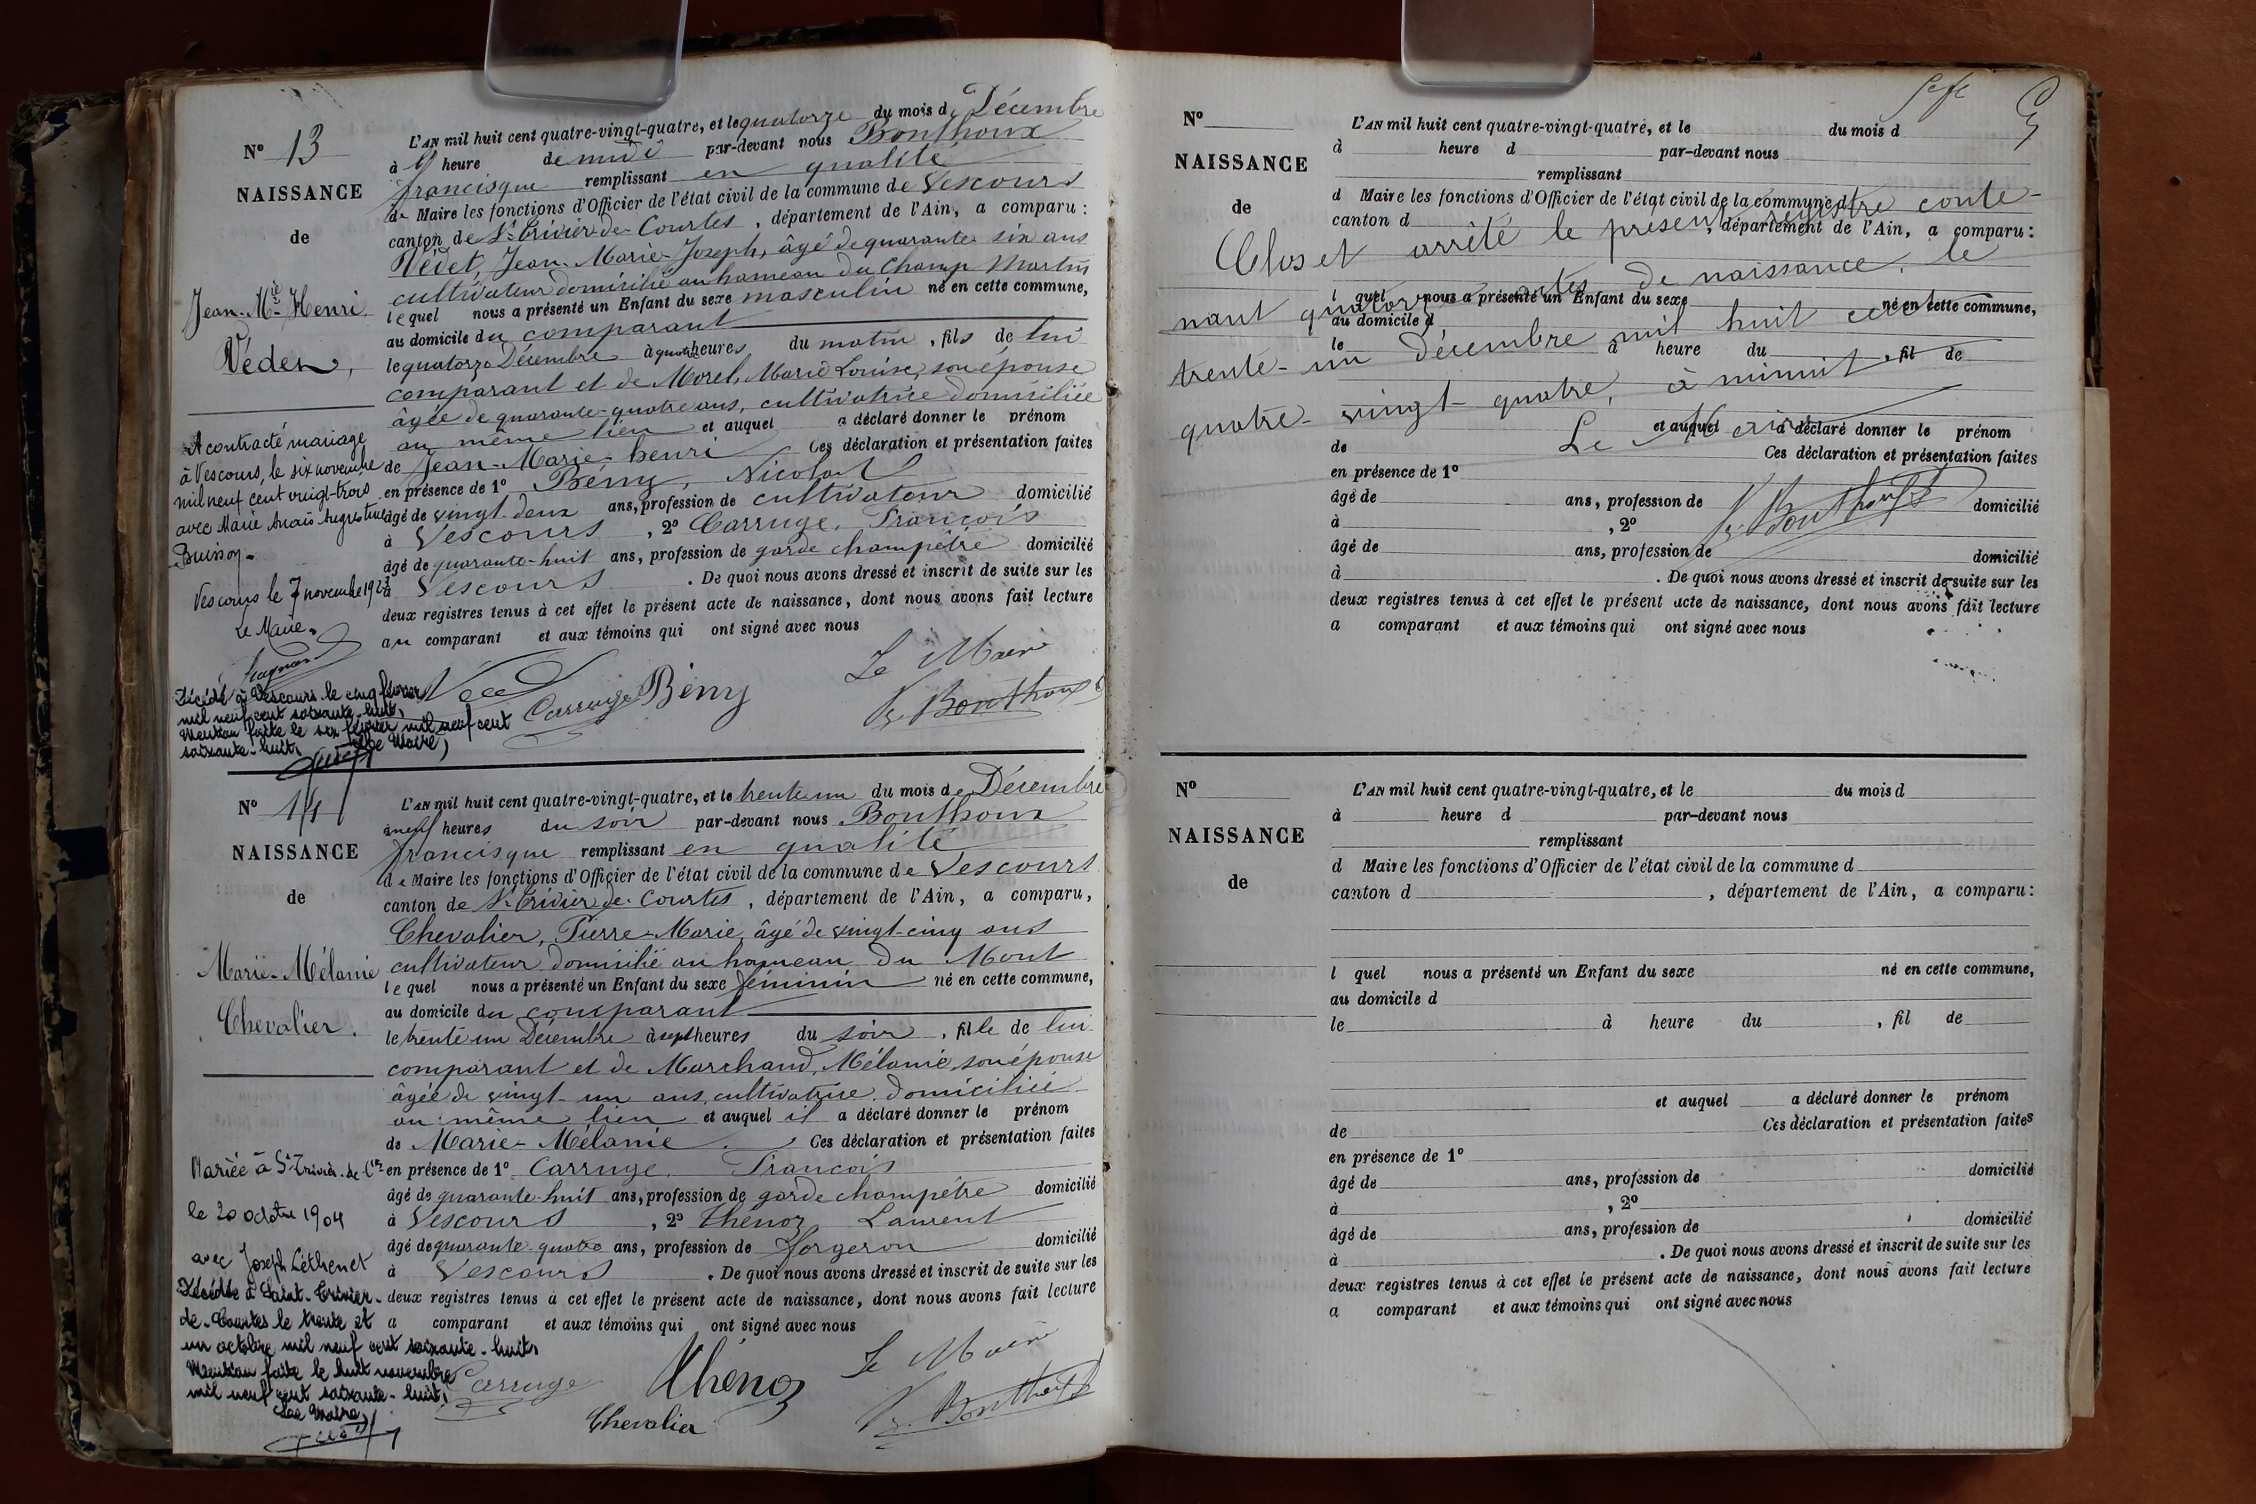 N° 13
NAISSANCE
de
Jean-Mie-Henri
Védet,
L'AN mil huit cent quatre-vingt-quatre, et le quatorze du mois de Décembre
à heure de midi par-devant nous Bonthoux
francisque remplissant en qualité
de Maire les fonctions d'Officier de l'état civil de la commune de Vescours
canton de St Trivier-de-Courtes, département de l'Ain, a comparu :
Védet, Jean-Marie-Joseph, âgé de quarante six ans
cultivateur domicilié au hameau du Champ Martin
lequel nous a présenté un Enfant du sexe masculin né en cette commune,
au domicile du comparant
le quatorze Décembre à quatre heures du matin, fils de lui
comparant et de Morel, Marie Louise, son épouse
âgée de quarante-quatre ans, cultivatrice domiciliée
au même lieu et auquel a déclaré donner le prénom
de Jean-Marie-henri Ces déclaration et présentation faites
en présence de 1° Bémy, Nicolas
âgé de vingt-deux ans, profession de cultivateur domicilié
à Vescours, 2° Carruge, François
âgé de quarante-huit ans, profession de garde champêtre domicilié
à Vescours. De quoi nous avons dressé et inscrit de suite sur les
deux registres tenus à cet effet le présent acte de naissance, dont nous avons fait lecture
au comparant et aux témoins qui ont signé avec nous
Le Maire
Carruge Bémy
Fr. Bonthoux
A contracté mariage
à Vescours, le six novembre
mil neuf cent vingt-trois
avec Marie Anaïs Augustine
Buisson.
Vescours le 7 novembre 1923
Le Maire,
Décédé à Vescours le cinq février
mil neuf cent soixante-huit,
Mention faite le six février mil neuf cent
soixante-huit, Le Maire,
N° 14
NAISSANCE
de
Marie-Mélanie
Chevalier.
L'AN mil huit cent quatre-vingt-quatre, et le trente un du mois de Décembre
à neuf heures du soir par-devant nous Bonthoux
francisque remplissant en qualité
de Maire les fonctions d'Officier de l'état civil de la commune de Vescours
canton de St Trivier-de-Courtes, département de l'Ain, a comparu,
Chevalier, Pierre-Marie, âgé de vingt-cinq ans
cultivateur domicilié au hameau du Mont
lequel nous a présenté un Enfant du sexe féminin né en cette commune,
au domicile du comparant
le trente un Décembre à sept heures du soir, fille de lui
comparant et de Marchand, Mélanie, son épouse
âgée de vingt-un ans, cultivatrice domiciliée
au même lieu et auquel il a déclaré donner le prénom
de Marie-Mélanie. Ces déclaration et présentation faites
en présence de 1° Carruge, François
âgé de quarante-huit ans, profession de garde champêtre domicilié
à Vescours, 2° Thénoz Laurent
âgé de quarante-quatre ans, profession de forgeron domicilié
à Vescours. De quoi nous avons dressé et inscrit de suite sur les
deux registres tenus à cet effet le présent acte de naissance, dont nous avons fait lecture
a comparant et aux témoins qui ont signé avec nous
Le Maire
Carruge Thénoz
Chevalier
Fr. Bonthoux
Mariée à St Trivier-de-Ctes
le 20 octobre 1904
avec Joseph Léthenet
Décédée à Saint-Trivier-
de-Courtes le trente et
un octobre mil neuf cent soixante-huit.
Mention faite le huit novembre
mil neuf cent soixante-huit,
Le Maire,
N°
NAISSANCE
de
L'AN mil huit cent quatre-vingt-quatre, et le du mois d
à heure d par-devant nous
remplissant
d Maire les fonctions d'Officier de l'état civil de la commune d
canton d , département de l'Ain, a comparu :
l quel nous a présenté un Enfant du sexe né en cette commune,
au domicile d
le à heure du , fil de
et auquel a déclaré donner le prénom
de Ces déclaration et présentation faites
en présence de 1°
âgé de ans, profession de domicilié
à , 2°
âgé de ans, profession de domicilié
à . De quoi nous avons dressé et inscrit de suite sur les
deux registres tenus à cet effet le présent acte de naissance, dont nous avons fait lecture
a comparant et aux témoins qui ont signé avec nous
Clos et arrêté le présent registre conte-
nant quatorze actes de naissance, le
trente-un Décembre mil huit cent
quatre-vingt-quatre, à minuit
Le Maire
Fr. Bonthoux
N°
NAISSANCE
de
L'AN mil huit cent quatre-vingt-quatre, et le du mois d
à heure d par-devant nous
remplissant
d Maire les fonctions d'Officier de l'état civil de la commune d
canton d , département de l'Ain, a comparu :
l quel nous a présenté un Enfant du sexe né en cette commune,
au domicile d
le à heure du , fil de
et auquel a déclaré donner le prénom
de Ces déclaration et présentation faites
en présence de 1°
âgé de ans, profession de domicilié
à , 2°
âgé de ans, profession de domicilié
à . De quoi nous avons dressé et inscrit de suite sur les
deux registres tenus à cet effet le présent acte de naissance, dont nous avons fait lecture
a comparant et aux témoins qui ont signé avec nous